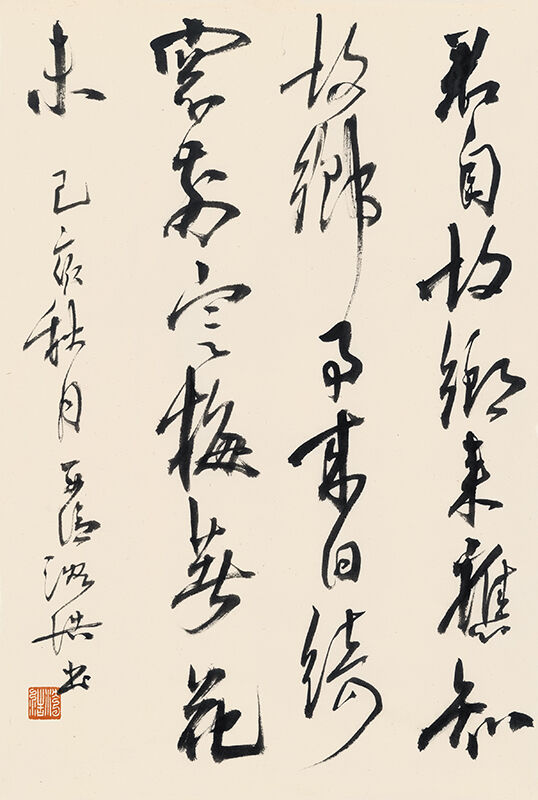 君自故鄉来應知
故鄉事来日綺
窗前寒梅著花
未 己亥秋月 浩書